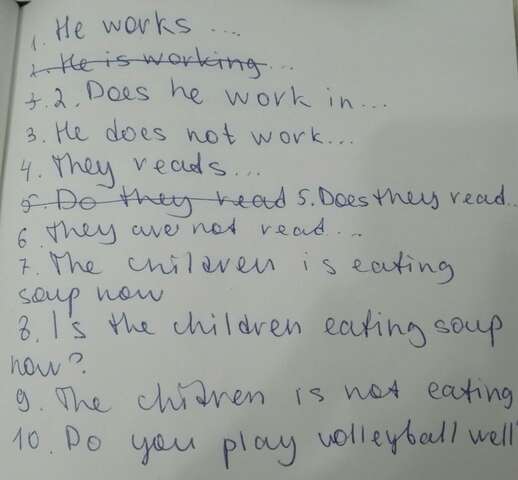 1. He works ...
2. He is working ...
3. 2. Does he work in ...
3. He does not work ...
4. They reads ...
5. Do they read 5. Does they read ..
6. They are not read ...
7. The children is eating
soup now
8. Is the children eating soup
now?
9. The children is not eating
10. Do you play volleyball well